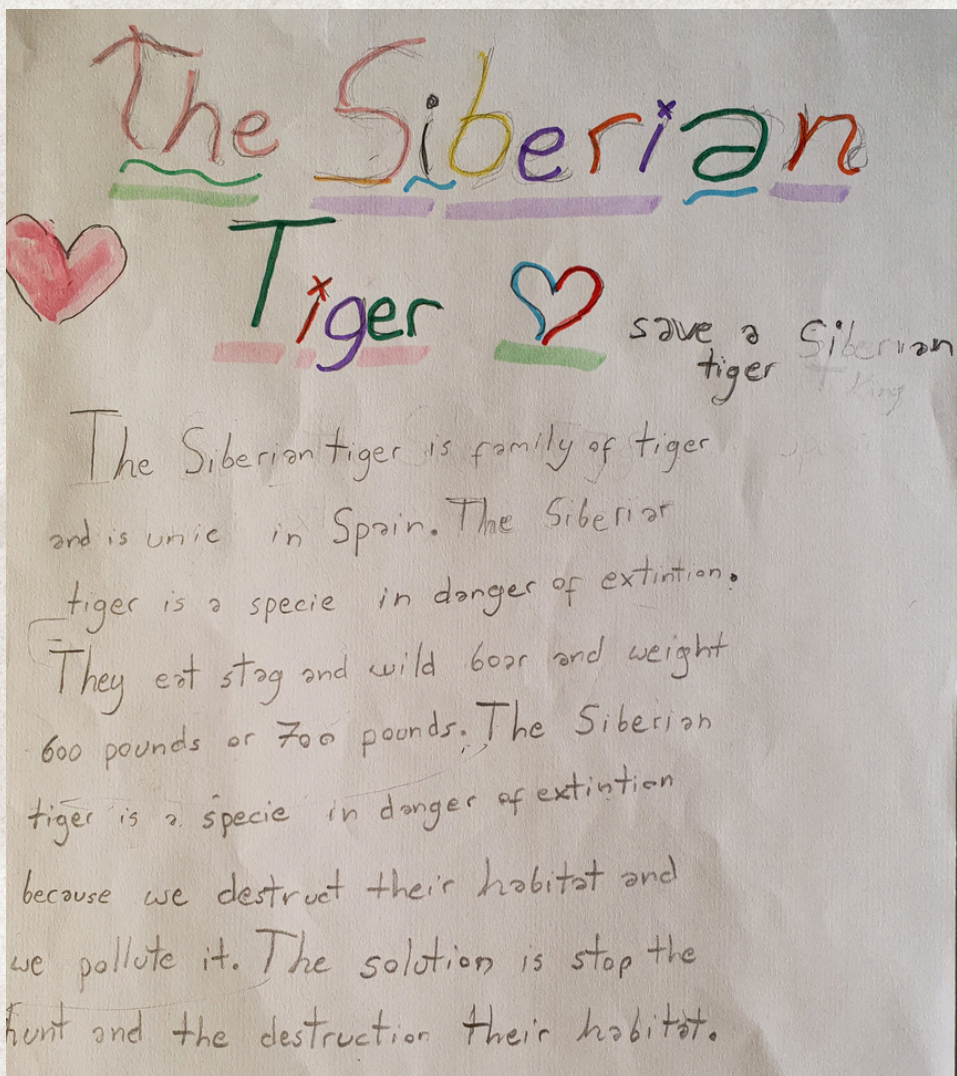 The Siberian
Tiger
save a Siberian
tiger
The Siberian tiger is family of tiger
and is unic in Spain. The Siberian
tiger is a specie in danger of extintion.
They eat stag and wild boar and weight
600 pounds or 700 pounds. The Siberian
tiger is a specie in danger of extintion
because we destruct their habitat and
we pollute it. The solution is stop the
hunt and the destruction their habitat.